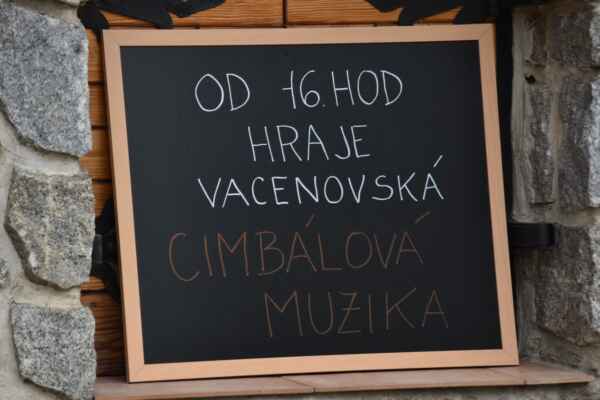 OD 16. HOD
HRAJE
VACENOVSKÁ
CIMBÁLOVÁ
MUZIKA